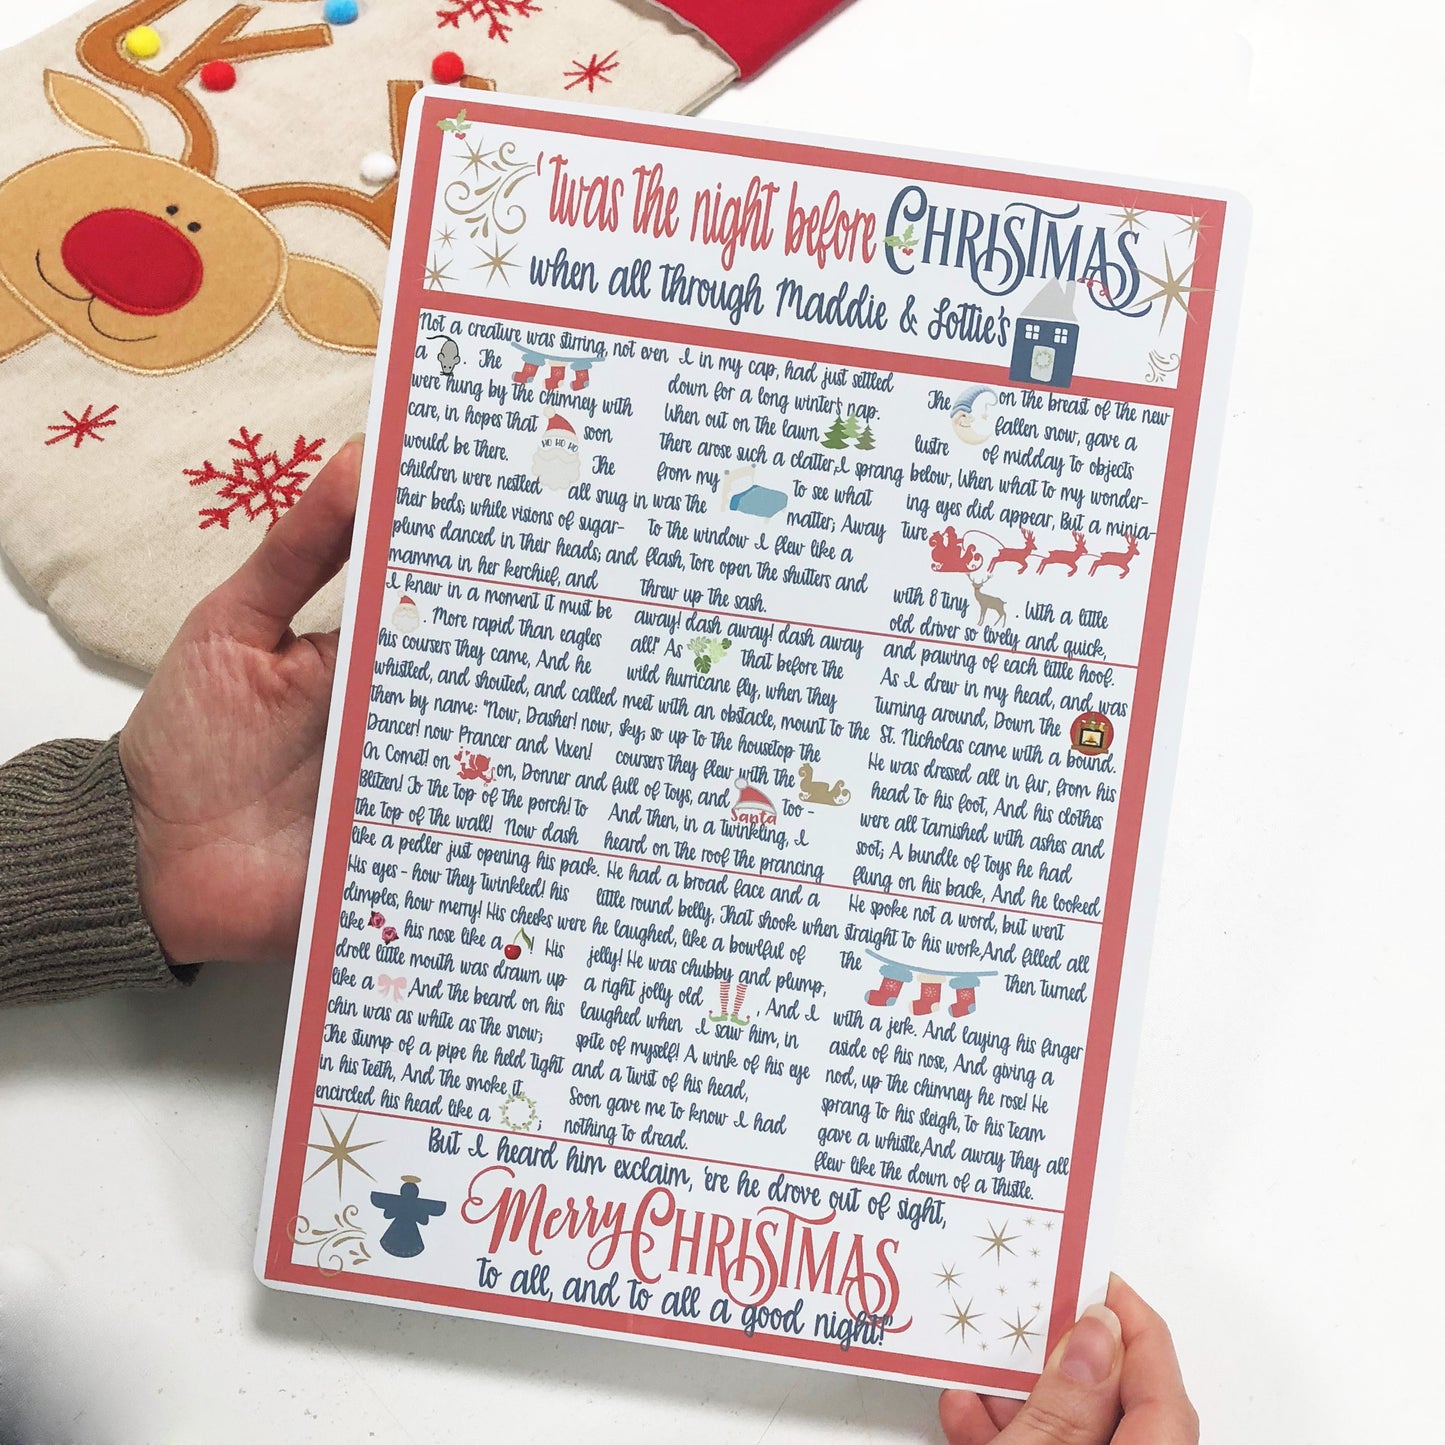 'twas the night before CHRISTMAS
when all through Maddie & Lottie's
Not a creature was stirring, not even
a . The
were hung by the chimney with
care, in hopes that soon
HO HO HO
would be there. The
children were nestled all snug in
their beds; while visions of sugar-
plums danced in their heads; and
mamma in her kerchief, and
I in my cap, had just settled
down for a long winter's nap.
When out on the lawn
there arose such a clatter, I sprang
from my to see what
was the matter; Away
to the window I flew like a
flash, tore open the shutters and
threw up the sash.
The on the breast of the new
fallen snow, gave a
lustre of midday to objects
below, When what to my wonder-
ing eyes did appear, But a minia-
ture
with 8 tiny . With a little
old driver so lively and quick,
I knew in a moment it must be
. More rapid than eagles
his coursers they came, And he
whistled, and shouted, and called
them by name: "Now, Dasher! now,
Dancer! now Prancer and Vixen!
On Comet! on on, Donner and
Blitzen! To the top of the porch! to
the top of the wall! Now dash
away! dash away! dash away
all!" As that before the
wild hurricane fly, when they
meet with an obstacle, mount to the
sky; so up to the housetop the
coursers they flew with the
full of toys, and too -
Santa
And then, in a twinkling, I
heard on the roof the prancing
and pawing of each little hoof.
As I drew in my head, and was
turning around, Down the
St. Nicholas came with a bound.
He was dressed all in fur, from his
head to his foot, And his clothes
were all tarnished with ashes and
soot; A bundle of toys he had
flung on his back, And he looked
like a pedler just opening his pack.
His eyes - how they twinkled! his
dimples, how merry! His cheeks were
like his nose like a ! His
droll little mouth was drawn up
like a And the beard on his
chin was as white as the snow;
The stump of a pipe he held tight
in his teeth, And the smoke, it
encircled his head like a ;
He had a broad face and a
little round belly, That shook when
he laughed, like a bowlful of
jelly! He was chubby and plump,
a right jolly old , And I
laughed when I saw him, in
spite of myself! A wink of his eye
and a twist of his head,
Soon gave me to know I had
nothing to dread.
He spoke not a word, but went
straight to his work,And filled all
the then turned
with a jerk. And laying his finger
aside of his nose, And giving a
nod, up the chimney he rose! He
sprang to his sleigh, to his team
gave a whistle,And away they all
flew like the down of a thistle.
But I heard him exclaim, 'ere he drove out of sight,
Merry CHRISTMAS
to all, and to all a good night!"